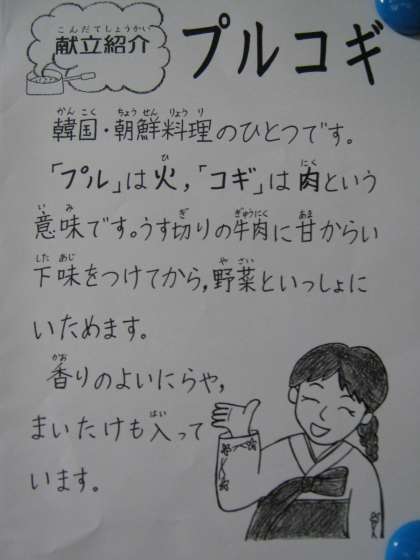 こんだてしょうかい
献立紹介
プルコギ
かんこく ちょうせんりょうり
韓国・朝鮮料理のひとつです。
ひ にく
「プル」は火,「コギ」は肉という
いみ ぎ ぎゅうにく あま
意味です。うす切りの牛肉に甘からい
したあじ やさい
下味をつけてから,野菜といっしょに
いためます。
かお
香りのよいにらや,
はい
まいたけも入って
います。